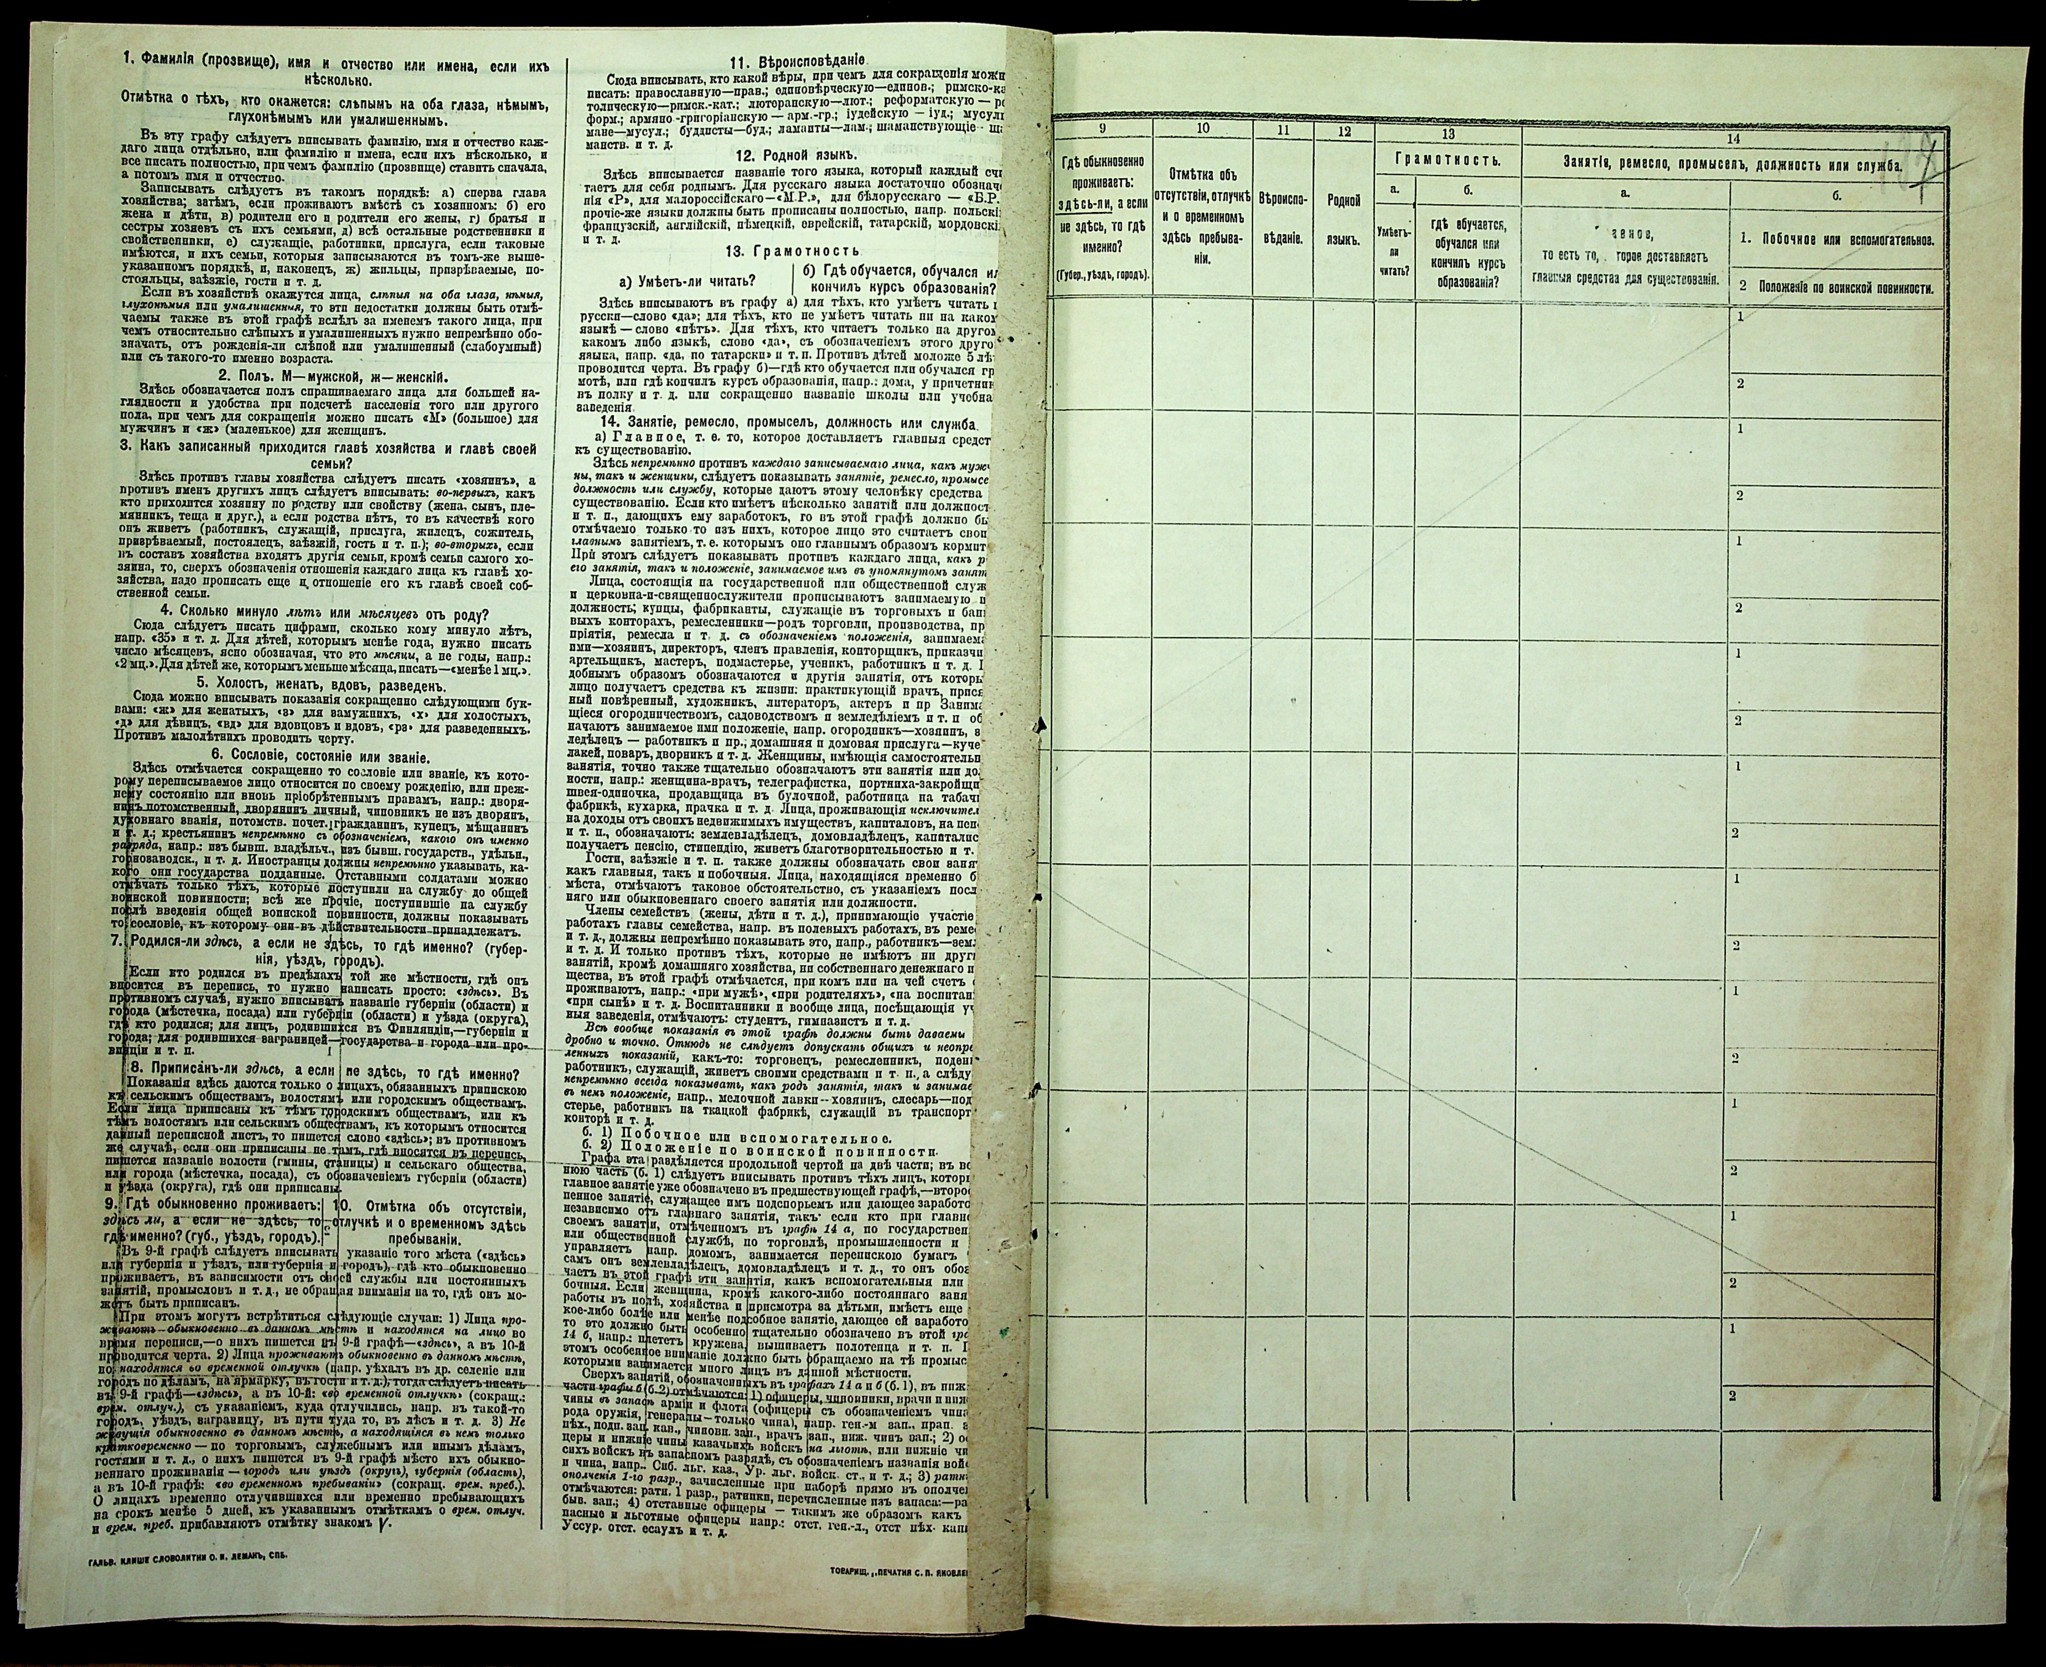 1. Фамилія (прозвище), имя и отчество или имена, если ихъ
нѣсколько.
Отмѣтка о тѣхъ, кто окажется: слѣпымъ на оба глаза, нѣмымъ,
глухонѣмымъ или умалишеннымъ.
Въ эту графу слѣдуетъ вписывать фамилію, имя и отчество каж-
даго лица отдѣльно, или фамилію и имена, если ихъ нѣсколько, и
все писать полностью, при чемъ фамилію (прозвище) ставить сначала,
а потомъ имя и отчество.
Записывать слѣдуетъ въ такомъ порядкѣ: а) сперва глава
хозяйства; затѣмъ, если проживаютъ вмѣстѣ съ хозяиномъ: б) его
жена и дѣти, в) родители его и родители его жены, г) братья и
сестры хозяевъ съ ихъ семьями, д) всѣ остальные родственники и
свойственники, е) служащіе, работники, прислуга, если таковые
имѣются, и ихъ семьи, которыя записываются въ томъ-же выше-
указанномъ порядкѣ, и, наконецъ, ж) жильцы, призрѣваемые, по-
стояльцы, заѣзжіе, гости и т. д.
Если въ хозяйствѣ окажутся лица, слѣпыя на оба глаза, нѣмыя,
глухонѣмыя или умалишенныя, то эти недостатки должны быть отмѣ-
чаемы также въ этой графѣ вслѣдъ за именемъ такого лица, при
чемъ относительно слѣпыхъ и умалишенныхъ нужно непремѣнно обо-
значать, отъ рожденія-ли слѣпой или умалишенный (слабоумный)
или съ такого-то именно возраста.
2. Полъ. М—мужской, ж—женскій.
Здѣсь обозначается полъ спрашиваемаго лица для большей на-
глядности и удобства при подсчетѣ населенія того или другого
пола, при чемъ для сокращенія можно писать «М» (большое) для
мужчинъ и «ж» (маленькое) для женщинъ.
3. Какъ записанный приходится главѣ хозяйства и главѣ своей
семьи?
Здѣсь противъ главы хозяйства слѣдуетъ писать «хозяинъ», а
противъ именъ другихъ лицъ слѣдуетъ вписывать: во-первыхъ, какъ
кто приходится хозяину по родству или свойству (жена, сынъ, пле-
мянникъ, теща и друг.), а если родства нѣтъ, то въ качествѣ кого
онъ живетъ (работникъ, служащій, прислуга, жилецъ, сожитель,
призрѣваемый, постоялецъ, заѣзжій, гость и т. п.); во-вторыхъ, если
въ составъ хозяйства входятъ другія семьи, кромѣ семьи самого хо-
зяина, то, сверхъ обозначенія отношенія каждаго лица къ главѣ хо-
зяйства, надо прописать еще и отношеніе его къ главѣ своей соб-
ственной семьи.
4. Сколько минуло лѣтъ или мѣсяцевъ отъ роду?
Сюда слѣдуетъ писать цифрами, сколько кому минуло лѣтъ,
напр. «35» и т. д. Для дѣтей, которымъ менѣе года, нужно писать
число мѣсяцевъ, ясно обозначая, что это мѣсяцы, а не годы, напр.:
«2 мц.». Для дѣтей же, которымъ меньше мѣсяца, писать—«менѣе 1 мц.».
5. Холостъ, женатъ, вдовъ, разведенъ.
Сюда можно вписывать показанія сокращенно слѣдующими бук-
вами: «ж» для женатыхъ, «з» для замужнихъ, «х» для холостыхъ,
«д» для дѣвицъ, «вд» для вдовцовъ и вдовъ, «рз» для разведенныхъ.
Противъ малолѣтнихъ проводить черту.
6. Сословіе, состояніе или званіе.
Здѣсь отмѣчается сокращенно то сословіе или званіе, къ кото-
рому переписываемое лицо относится по своему рожденію, или преж-
нему состоянію или вновь пріобрѣтеннымъ правамъ, напр.: дворя-
нинъ потомственный, дворянинъ личный, чиновникъ не изъ дворянъ,
духовнаго званія, потомств. почет. гражданинъ, купецъ, мѣщанинъ
и т. д.; крестьянинъ непремѣнно съ обозначеніемъ, какого онъ именно
разряда, напр.: изъ бывш. владѣльч., изъ бывш. государств., удѣльн.,
горнозаводск., и т. д. Иностранцы должны непремѣнно указывать, ка-
кого они государства подданные. Отставными солдатами можно
отмѣчать только тѣхъ, которые поступили на службу до общей
воинской повинности; всѣ же прочіе, поступившіе на службу
послѣ введенія общей воинской повинности, должны показывать
то сословіе, къ которому они въ дѣйствительности принадлежатъ.
7. Родился-ли здѣсь, а если не здѣсь, то гдѣ именно? (губер-
нія, уѣздъ, городъ).
Если кто родился въ предѣлахъ той же мѣстности, гдѣ онъ
вносится въ перепись, то нужно написать просто: «здѣсь». Въ
противномъ случаѣ, нужно вписывать названіе губерніи (области) и
города (мѣстечка, посада) или губерніи (области) и уѣзда (округа),
гдѣ кто родился; для лицъ, родившихся въ Финляндіи,—губерніи и
города; для родившихся заграницей—государства и города или про-
винціи и т. п.
8. Приписанъ-ли здѣсь, а если не здѣсь, то гдѣ именно?
Показанія здѣсь даются только о лицахъ, обязанныхъ припискою
къ сельскимъ обществамъ, волостямъ или городскимъ обществамъ.
Если лица приписаны къ тѣмъ городскимъ обществамъ, или къ
тѣмъ волостямъ или сельскимъ обществамъ, къ которымъ относится
данный переписной листъ, то пишется слово «здѣсь»; въ противномъ
же случаѣ, если они приписаны не тамъ, гдѣ вносятся въ перепись,
пишется названіе волости (гмины, станицы) и сельскаго общества,
или города (мѣстечка, посада), съ обозначеніемъ губерніи (области)
и уѣзда (округа), гдѣ они приписаны.
9. Гдѣ обыкновенно проживаетъ:
здѣсь ли, а если не здѣсь, то
гдѣ именно? (губ., уѣздъ, городъ).
10. Отмѣтка объ отсутствіи,
отлучкѣ и о временномъ здѣсь
пребываніи.
Въ 9-й графѣ слѣдуетъ вписывать указаніе того мѣста («здѣсь»
или губернія и уѣздъ, или губернія и городъ), гдѣ кто обыкновенно
проживаетъ, въ зависимости отъ своей службы или постоянныхъ
занятій, промысловъ и т. д., не обращая вниманія на то, гдѣ онъ мо-
жетъ быть приписанъ.
При этомъ могутъ встрѣтиться слѣдующіе случаи: 1) Лица про-
живаютъ обыкновенно въ данномъ мѣстѣ и находятся на лицо во
время переписи,—о нихъ пишется въ 9-й графѣ—«здѣсь», а въ 10-й
проводится черта. 2) Лица проживаютъ обыкновенно въ данномъ мѣстѣ,
но находятся во временной отлучкѣ (напр. уѣхалъ въ др. селеніе или
городъ по дѣламъ, на ярмарку, въ гости и т. д.), тогда слѣдуетъ писать
въ 9-й графѣ—«здѣсь», а въ 10-й: «во временной отлучкѣ» (сокращ.:
врем. отлуч.), съ указаніемъ, куда отлучились, напр. въ такой-то
городъ, уѣздъ, заграницу, въ пути туда то, въ лѣсъ и т. д. 3) Не
живущія обыкновенно въ данномъ мѣстѣ, а находящіяся въ немъ только
кратковременно — по торговымъ, служебнымъ или инымъ дѣламъ,
гостями и т. д., о нихъ пишется въ 9-й графѣ мѣсто ихъ обыкно-
веннаго проживанія — городъ или уѣздъ (округъ), губернія (область),
а въ 10-й графѣ: «во временномъ пребываніи» (сокращ. врем. преб.).
О лицахъ временно отлучившихся или временно пребывающихъ
на срокъ менѣе 5 дней, къ указаннымъ отмѣткамъ о врем. отлуч.
и врем. преб. прибавляютъ отмѣтку знакомъ V.
ГАЛЬВ. КЛИШЕ СЛОВОЛИТНИ О. И. ЛЕМАНЪ, СПБ.
11. Вѣроисповѣданіе
Сюда вписывать, кто какой вѣры, при чемъ для сокращенія можн
писать: православную—прав.; единовѣрческую—единов.; римско-ка
толическую—римск.-кат.; лютеранскую—лют.; реформатскую — ре
форм.; армяно-григоріанскую — арм.-гр.; іудейскую — іуд.; мусуль
мане—мусул.; буддисты—буд.; ламаиты—лам.; шаманствующіе — ша
манств. и т. д.
12. Родной языкъ.
Здѣсь вписывается названіе того языка, который каждый счи
таетъ для себя роднымъ. Для русскаго языка достаточно обознач
нія «Р», для малороссійскаго—«М.Р.», для бѣлорусскаго — «Б.Р.
прочіе-же языки должны быть прописаны полностью, напр. польскі
французскій, англійскій, нѣмецкій, еврейскій, татарскій, мордовскі
и т. д.
13. Грамотность
а) Умѣетъ-ли читать?
б) Гдѣ обучается, обучался ил
кончилъ курсъ образованія?
Здѣсь вписываютъ въ графу а) для тѣхъ, кто умѣетъ читать
русски—слово «да»; для тѣхъ, кто не умѣетъ читать ни на каком
языкѣ — слово «нѣтъ». Для тѣхъ, кто читаетъ только на другом
какомъ либо языкѣ, слово «да», съ обозначеніемъ этого друго
языка, напр. «да, по татарски» и т. п. Противъ дѣтей моложе 5 лѣ
проводится черта. Въ графу б)—гдѣ кто обучается или обучался гр
мотѣ, или гдѣ кончилъ курсъ образованія, напр.: дома, у причетник
въ полку и т. д. или сокращенно названіе школы или учебна
заведенія.
14. Занятіе, ремесло, промыселъ, должность или служба.
а) Главное, т. е. то, которое доставляетъ главныя средст
къ существованію.
Здѣсь непремѣнно противъ каждаго записываемаго лица, какъ мужч
ны, такъ и женщины, слѣдуетъ показывать занятіе, ремесло, промысе
должность или службу, которые даютъ этому человѣку средства
существованію. Если кто имѣетъ нѣсколько занятій или должност
и т. п., дающихъ ему заработокъ, то въ этой графѣ должно бы
отмѣчаемо только то изъ нихъ, которое лицо это считаетъ свои
главнымъ занятіемъ, т. е. которымъ оно главнымъ образомъ кормит
При этомъ слѣдуетъ показывать противъ каждаго лица, какъ р
его занятія, такъ и положеніе, занимаемое имъ въ упомянутомъ занят
Лица, состоящія на государственной или общественной служ
и церковна-и-священнослужители прописываютъ занимаемую и
должность; купцы, фабриканты, служащіе въ торговыхъ и бан
выхъ конторахъ, ремесленники—родъ торговли, производства, пр
пріятія, ремесла и т. д. съ обозначеніемъ положенія, занимаема
ими—хозяинъ, директоръ, членъ правленія, конторщикъ, приказчи
артельщикъ, мастеръ, подмастерье, ученикъ, работникъ и т. д.
добнымъ образомъ обозначаются и другія занятія, отъ которы
лицо получаетъ средства къ жизни: практикующій врачъ, прися
ный повѣренный, художникъ, литераторъ, актеръ и пр Занима
щіеся огородничествомъ, садоводствомъ и земледѣліемъ и т. п об
начаютъ занимаемое ими положеніе, напр. огородникъ—хозяинъ, з
ледѣлецъ — работникъ и пр.; домашняя и домовая прислуга—куче
лакей, поваръ, дворникъ и т. д. Женщины, имѣющія самостоятельн
занятія, точно также тщательно обозначаютъ эти занятія или до
ности, напр.: женщина-врачъ, телеграфистка, портниха-закройщи
швея-одиночка, продавщица въ булочной, работница на табачн
фабрикѣ, кухарка, прачка и т. д. Лица, проживающія исключител
на доходы отъ своихъ недвижимыхъ имуществъ, капиталовъ, на пен
и т. п., обозначаютъ: землевладѣлецъ, домовладѣлецъ, капиталис
получаетъ пенсію, стипендію, живетъ благотворительностью и т.
Гости, заѣзжіе и т. п. также должны обозначать свои заня
какъ главныя, такъ и побочныя. Лица, находящіяся временно б
мѣста, отмѣчаютъ таковое обстоятельство, съ указаніемъ посл
няго или обыкновеннаго своего занятія или должности.
Члены семействъ (жены, дѣти и т. д.), принимающіе участіе
работахъ главы семейства, напр. въ полевыхъ работахъ, въ реме
и т. д., должны непремѣнно показывать это, напр., работникъ—зем
и т. д. И только противъ тѣхъ, которые не имѣютъ ни друг
занятій, кромѣ домашняго хозяйства, ни собственнаго денежнаго и
щества, въ этой графѣ отмѣчается, при комъ или на чей счетъ
проживаютъ, напр.: «при мужѣ», «при родителяхъ», «на воспитан
«при сынѣ» и т. д. Воспитанники и вообще лица, посѣщающія уч
ныя заведенія, отмѣчаютъ: студентъ, гимназистъ и т. д.
Всѣ вообще показанія въ этой графѣ должны быть даваемы
дробно и точно. Отнюдь не слѣдуетъ допускать общихъ и неопре
ленныхъ показаній, какъ-то: торговецъ, ремесленникъ, поденщ
работникъ, служащій, живетъ своими средствами и т. п., а слѣду
непремѣнно всегда показывать, какъ родъ занятія, такъ и занимае
въ немъ положеніе, напр., мелочной лавки — хозяинъ, слесарь—под
стерье, работникъ на ткацкой фабрикѣ, служащій въ транспорт
конторѣ и т. д.
б. 1) Побочное или вспомогательное.
б. 2) Положеніе по воинской повинности.
Графа эта раздѣляется продольной чертой на двѣ части; въ ве
нюю часть (б. 1) слѣдуетъ вписывать противъ тѣхъ лицъ, котор
главное занятіе уже обозначено въ предшествующей графѣ,—второ
пенное занятіе, служащее имъ подспорьемъ или дающее заработо
независимо отъ главнаго занятія, такъ если кто при главно
своемъ занятіи, отмѣченномъ въ графѣ 14 а, по государствен
или общественной службѣ, по торговлѣ, промышленности и
управляетъ напр. домомъ, занимается перепискою бумагъ
самъ онъ землевладѣлецъ, домовладѣлецъ и т. д., то онъ обоз
чаетъ въ этой графѣ эти занятія, какъ вспомогательныя или
бочныя. Если женщина, кромѣ какого-либо постояннаго заня
работы въ полѣ, хозяйства и присмотра за дѣтьми, имѣетъ еще
кое-либо болѣе или менѣе подсобное занятіе, дающее ей заработо
то это должно быть особенно тщательно обозначено въ этой гра
14 б, напр.: плететъ кружева, вышиваетъ полотенца и т. п.
этомъ особенное вниманіе должно быть обращаемо на тѣ промыс
которыми занимается много лицъ въ данной мѣстности.
Сверхъ занятій, обозначенныхъ въ графахъ 14 а и б (б. 1), въ ниж
части графы б (б. 2) отмѣчаются: 1) офицеры, чиновники, врачи и ниж
чины въ запасѣ арміи и флота (офицеры съ обозначеніемъ чина
рода оружія, генералы—только чина), напр. ген.-м зап., прап. з
пѣх., подп. зап. кав., чиновн. зап., врачъ зап., ниж. чинъ зап.; 2) о
церы и нижніе чины казачьихъ войскъ на льготѣ, или нижніе чи
сихъ войскъ въ запасномъ разрядѣ, съ обозначеніемъ названія вой
и чина, напр.: Сиб. льг. каз., Ур. льг. войск. ст., и т. д.; 3) ратн
ополченія 1-го разр., зачисленные при наборѣ прямо въ ополче
отмѣчаются: ратн. 1 разр., ратники, перечисленные изъ запаса:—ра
быв. зап.; 4) отставные офицеры — такимъ же образомъ какъ
пасные и льготные офицеры напр.: отст. ген.-л., отст пѣх. кап
Уссур. отст. есаулъ и т. д.
ТОВАРИЩ. „ПЕЧАТНЯ С. П. ЯКОВЛЕ
9
10
11
12
13
14
Гдѣ обыкновенно
проживаетъ:
здѣсь-ли, а если
не здѣсь, то гдѣ
именно?
(Губер., уѣздъ, городъ).
Отмѣтка объ
отсутствіи, отлучкѣ
и о временномъ
здѣсь пребыва-
ніи.
Вѣроиспо-
вѣданіе.
Родной
языкъ.
Грамотность.
а.
Умѣетъ-
ли
читать?
б.
гдѣ обучается,
обучался или
кончилъ курсъ
образованія?
Занятіе, ремесло, промыселъ, должность или служба.
а.
авное,
то есть то, торое доставляетъ
главныя средства для существованія.
б.
1. Побочное или вспомогательное.
2 Положеніе по воинской повинности.
1
2
1
2
1
2
1
2
1
2
1
2
1
2
1
2
1
2
1
2